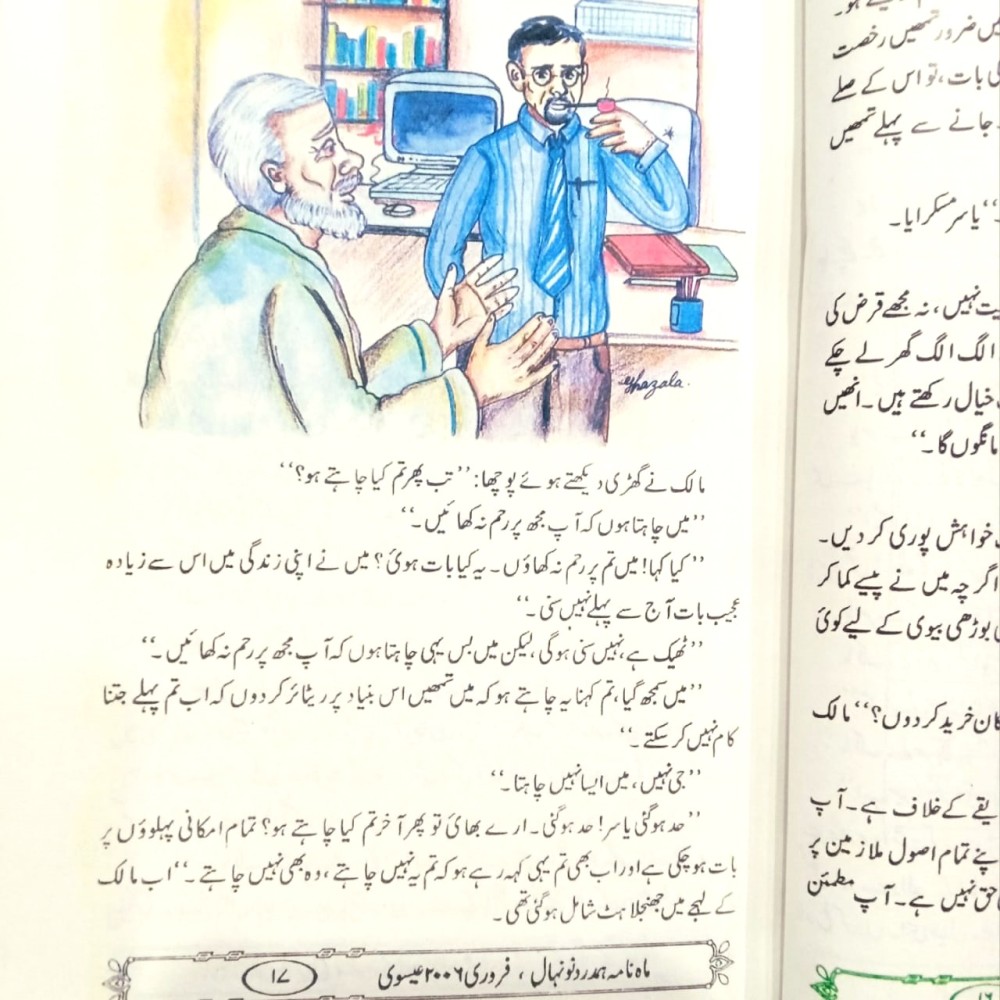 میں ضرور تمھیں رخصت
کی بات، تو اس کے صلے
جانے سے پہلے تمھیں
‘‘ یاسر مسکرایا۔
نہیں، نہ مجھے قرض کی
الگ الگ گھر لے چکے
خیال رکھتے ہیں۔ انھیں
مانگوں گا۔‘‘
خواہش پوری کر دیں۔
اگرچہ میں نے پیسے کما کر
بوڑھی بیوی کے لیے کوئی
خرید کر دوں؟‘‘ مالک
کے خلاف ہے۔ آپ
تمام اصول ملازمین پر
حق نہیں ہے۔ آپ مطمئن
Ghazala.
مالک نے گھڑی دیکھتے ہوئے پوچھا: ’’تب پھر تم کیا چاہتے ہو؟‘‘
’’میں چاہتا ہوں کہ آپ مجھ پر رحم نہ کھائیں۔‘‘
’’کیا کہا! میں تم پر رحم نہ کھاؤں۔ یہ کیا بات ہوئی؟ میں نے اپنی زندگی میں اس سے زیادہ
عجیب بات آج سے پہلے نہیں سنی۔‘‘
’’ٹھیک ہے، نہیں سنی ہوگی، لیکن میں بس یہی چاہتا ہوں کہ آپ مجھ پر رحم نہ کھائیں۔‘‘
’’میں سمجھ گیا، تم کہنا یہ چاہتے ہو کہ میں تمھیں اس بنیاد پر ریٹائر کر دوں کہ اب تم پہلے جتنا
کام نہیں کر سکتے۔‘‘
’’جی نہیں، میں ایسا نہیں چاہتا۔‘‘
’’حد ہوگئی یاسر! حد ہوگئی۔ ارے بھائی تو پھر آخر تم کیا چاہتے ہو؟ تمام امکانی پہلوؤں پر
بات ہو چکی ہے اور اب بھی تم یہی کہہ رہے ہو کہ تم یہ نہیں چاہتے، وہ بھی نہیں چاہتے۔‘‘ اب مالک
کے لہجے میں جھنجلاہٹ شامل ہوگئی تھی۔
ماہ نامہ ہمدرد نونہال ، فروری ۲۰۰۶ عیسوی
۱۷